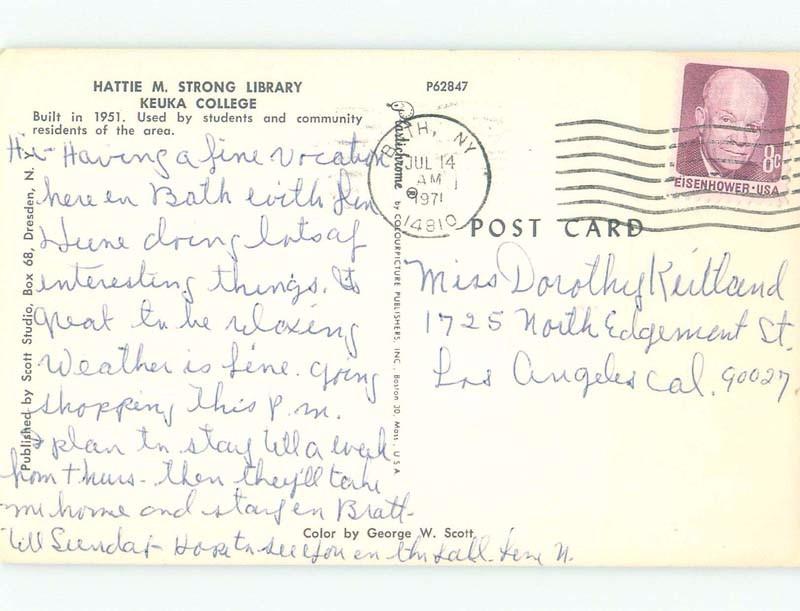 HATTIE M. STRONG LIBRARY
KEUKA COLLEGE
Built in 1951. Used by students and community
residents of the area.
P62847
Hi - Having a fine vocation
here in Bath with
doing lots of
interesting things. Its
great to be relaxing
Weather is fine. Going
shopping this P.M.
I plan to stay till a week
from Thurs - then they'll take
me home and stay in Bratt-
till Sunday - Hope to see you in the fall.
Published by Scott Studio, Box 68, Dresden, N. Y.
Plastichrome ® by COLOURPICTURE PUBLISHERS, INC., Boston 30, Mass., U.S.A
Color by George W. Scott
BATH, NY
JUL 14
AM
1971
14810
8c
EISENHOWER·USA
POST CARD
Miss Dorothy Keitland
1725 North Edgemont St.
Los Angeles Cal. 90027